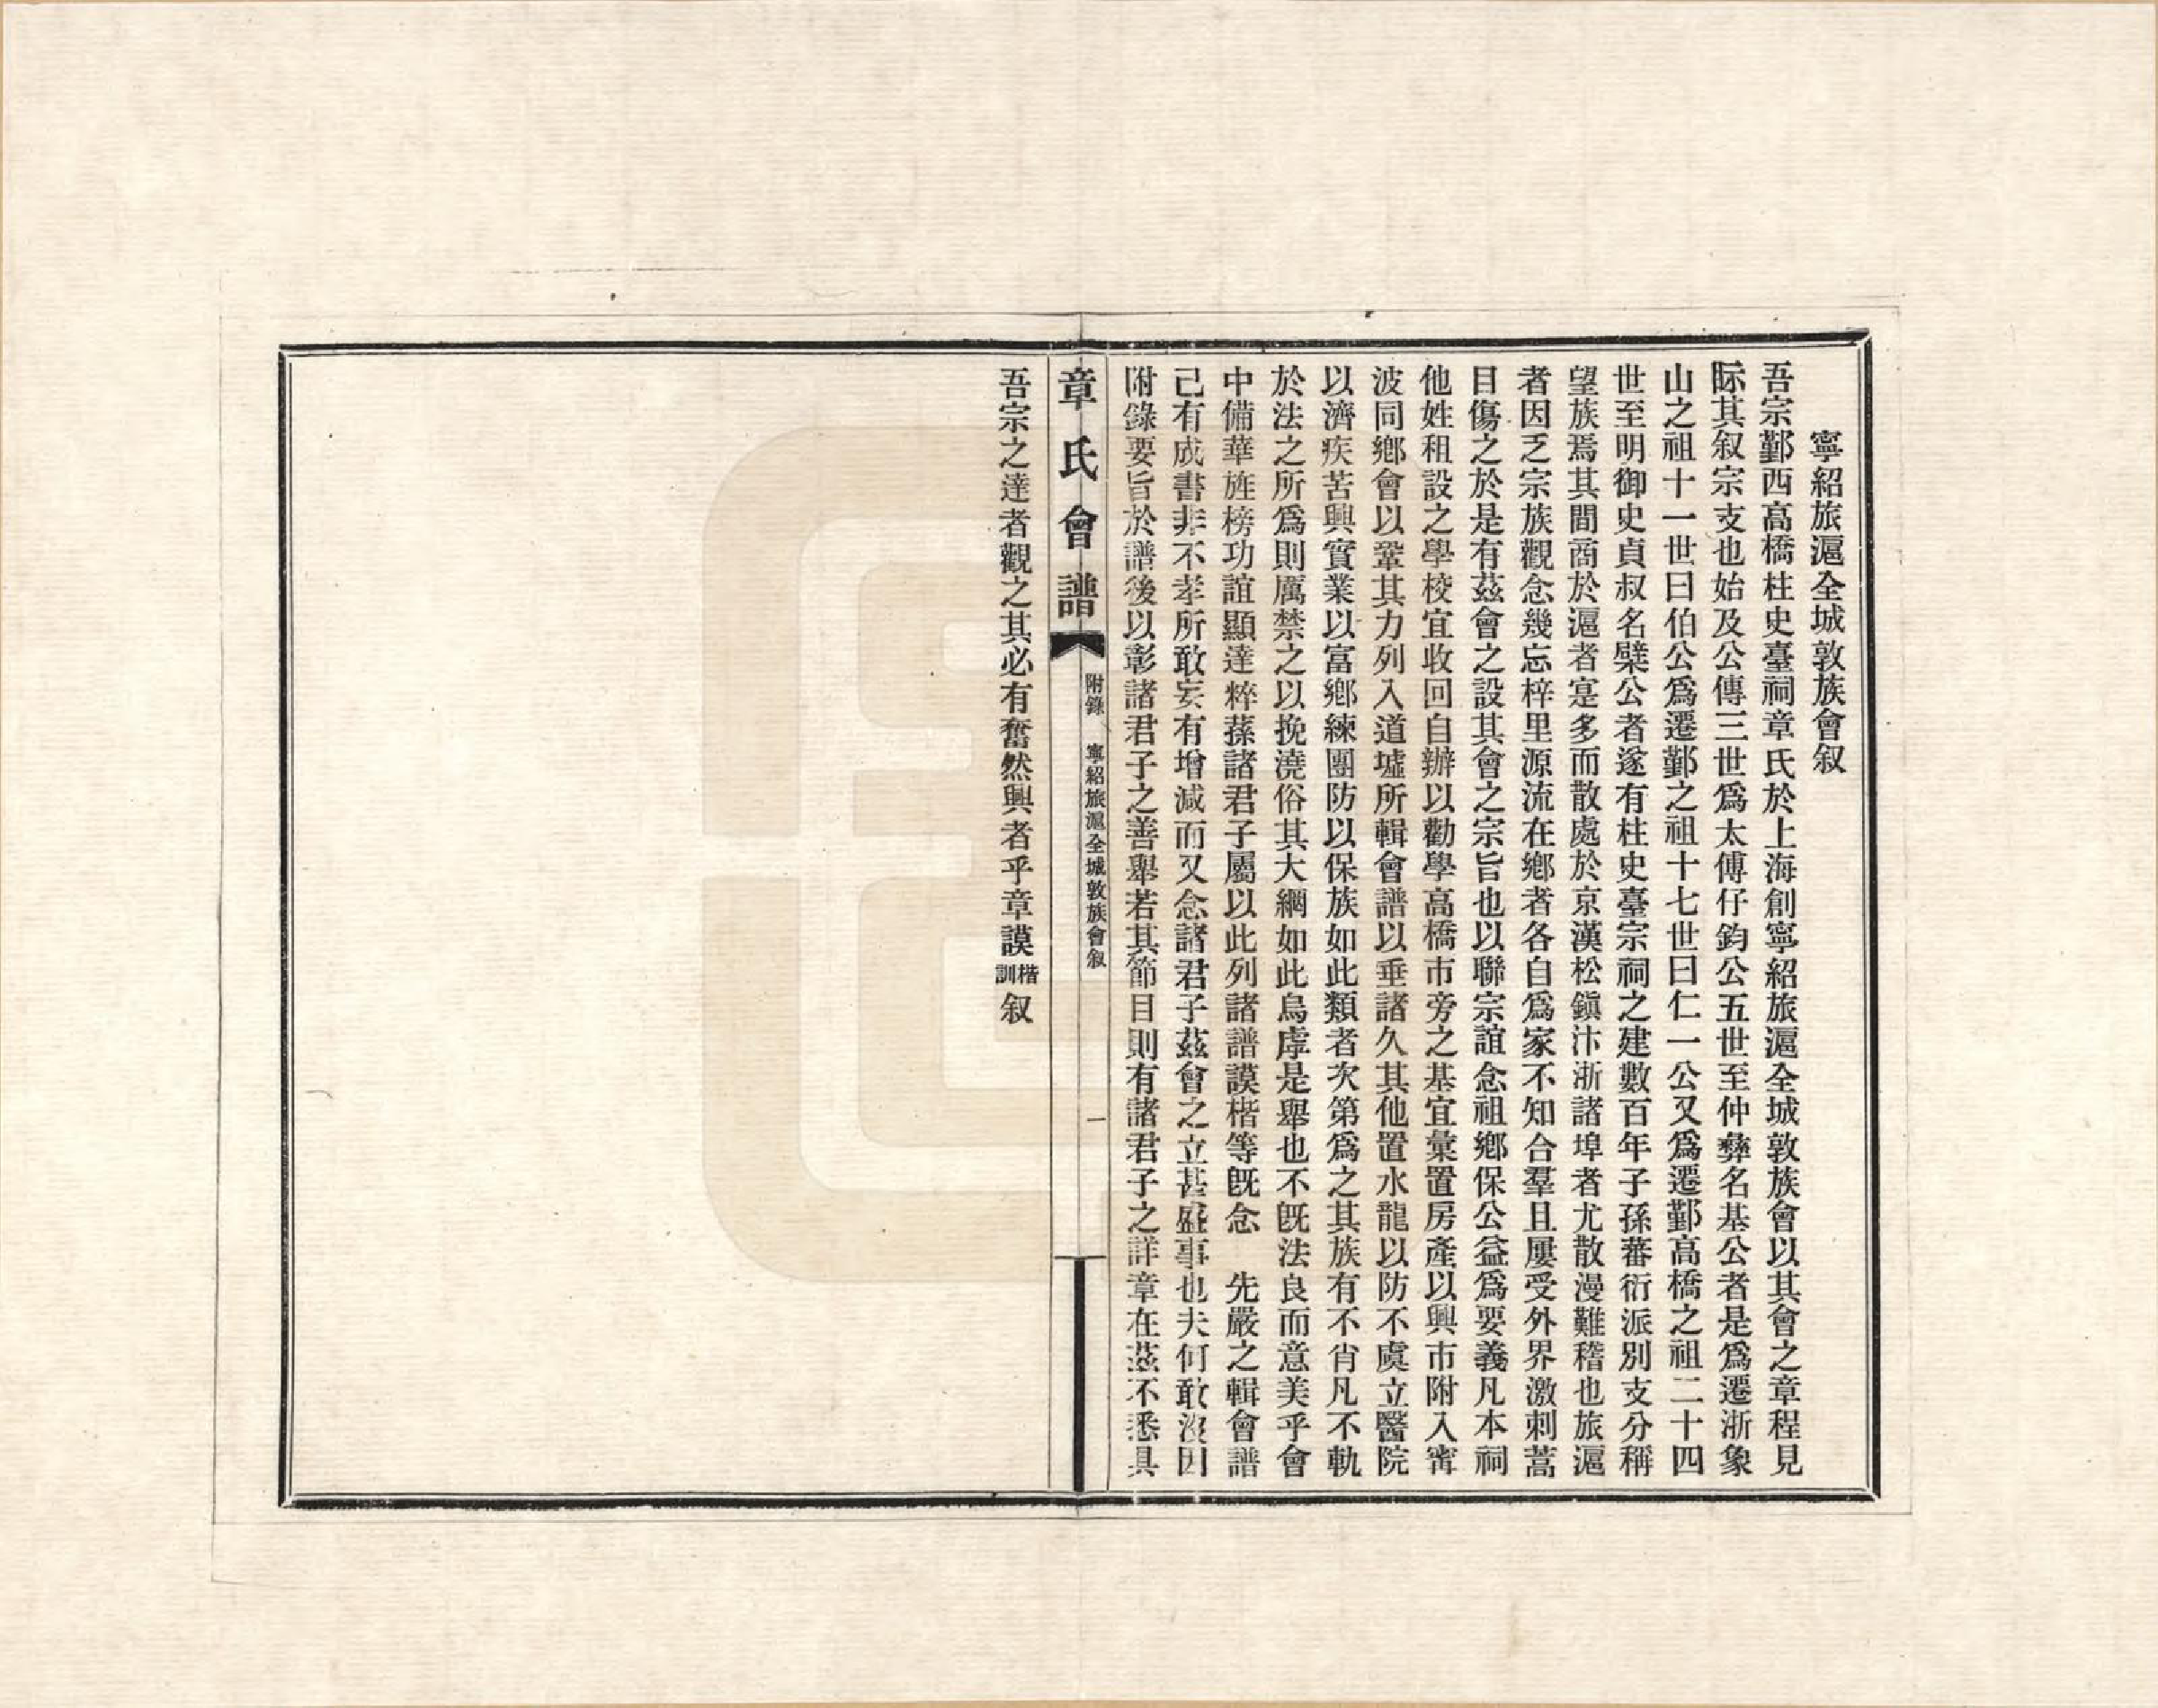 寧紹旅滬全城敦族會叙
吾宗鄞西高橋柱史臺祠章氏於上海創寧紹旅滬全城敦族會以其會之章程見
眎其叙宗支也始及公傳三世爲太傅仔鈞公五世至仲彝名基公者是爲遷浙象
山之祖十一世曰伯公爲遷鄞之祖十七世曰仁一公又爲遷鄞高橋之祖二十四
世至明御史貞叔名檗公者遂有柱史臺宗祠之建數百年子孫蕃衍派別支分稱
望族焉其間商於滬者寔多而散處於京漢松鎭汴浙諸埠者尤散漫難稽也旅滬
者因乏宗族觀念幾忘梓里源流在鄉者各自爲家不知合羣且屢受外界激刺蒿
目傷之於是有茲會之設其會之宗旨也以聯宗誼念祖鄉保公益爲要義凡本祠
他姓租設之學校宜收回自辦以勸學高橋市旁之基宜彙置房產以興市附入寗
波同鄉會以鞏其力列入道墟所輯會譜以垂諸久其他置水龍以防不虞立醫院
以濟疾苦興實業以富鄉練團防以保族如此類者次第爲之其族有不肖凡不軌
於法之所爲則厲禁之以挽澆俗其大綱如此烏虖是舉也不旣法良而意美乎會
中備華旌榜功誼顯達粹蓀諸君子屬以此列諸譜謨楷等旣念　先嚴之輯會譜
已有成書非不孝所敢妄有增減而又念諸君子茲會之立甚盛事也夫何敢沒因
附錄要旨於譜後以彰諸君子之善舉若其節目則有諸君子之詳章在茲不悉具
章氏會譜
附錄　寧紹旅滬全城敦族會叙
一
吾宗之達者觀之其必有奮然興者乎章謨楷訓叙